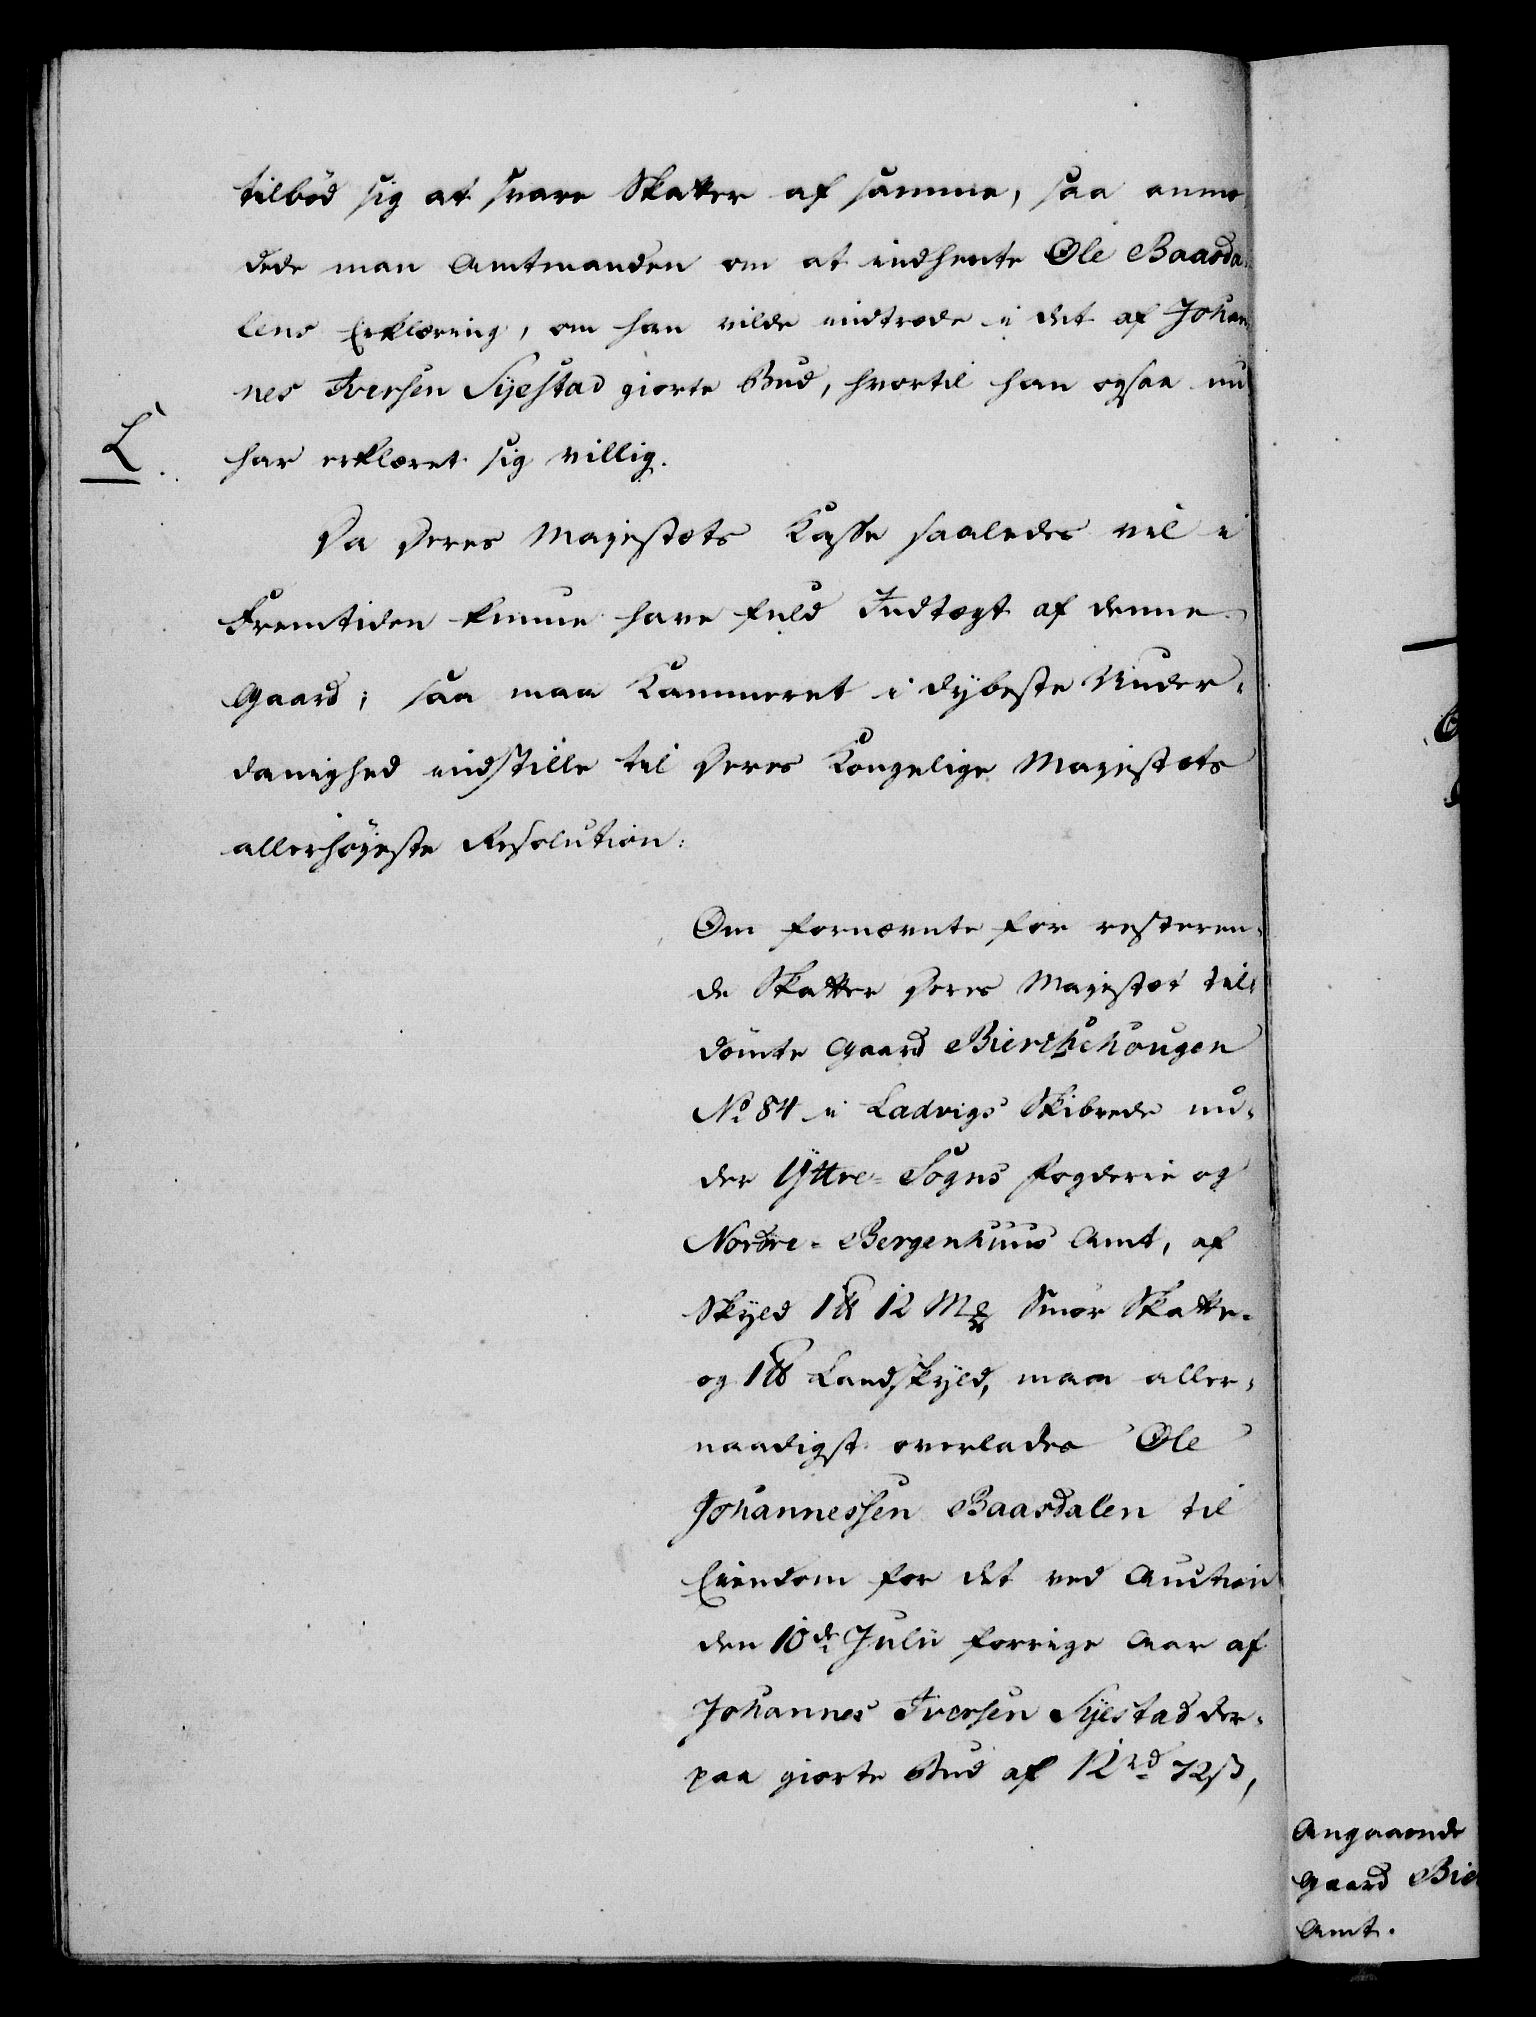 tilbød sig at svare Skatter af samme, saa anmo-
dede man Amtmanden om at indhente Ole Baarda-
lens Erklæring, om han vilde indtræde i det af Johan-
nes Iversen Syestad giorte Bud, hvortil han ogsaa nu
L.
har erklæret sig villig.
Da Deres Majestæts Kasse saaledes vil i
Fremtiden kunne have fuld Indtægt af denne
Gaard; saa maa Kammeret i dybeste Under-
danighed indstille til Deres Kongelige Majestæts
allerhøyeste Resolution:
Om fornævnte for resteren-
de Skatter Deres Majestæt til-
dømte Gaard Bierchehougen
No 84 i Ladvigs Skibrede un-
der Yttre-Sogns Fogderie og
Nordre-Bergenhuus Amt, af
Skyld 1 12 Smør Skatte-
og 1 Landskyld, maa aller-
naadigst overlades Ole
Johannessen Baardalen til
Eiendom for det ved Auction
den 10de Julii forrige Aar af
Johannes Iversen Syestad der-
paa giorte Bud af 12 rd 72 ß,
Angaaende
Gaard Bie
Amt.